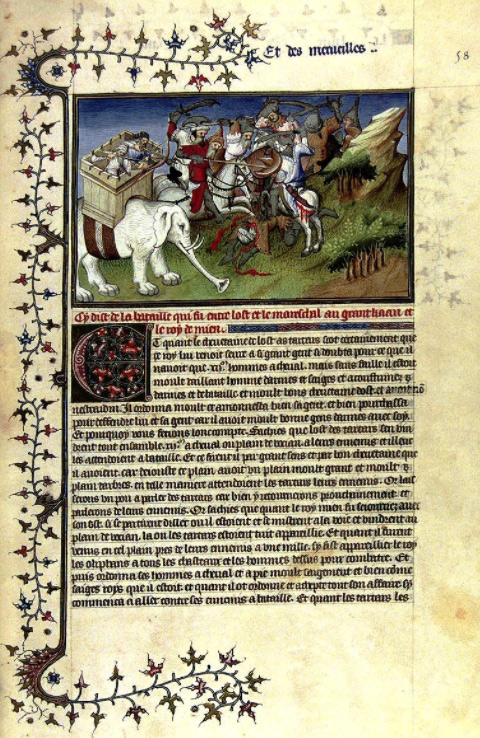 Et des merueilles
58
Cy dist de la bataille qui fu entre lost et le mareschal au grant kaan et
le roy de mien.
Et quant le cheuetaine de lost as tartars sceut certainement que
ce roy lui venoit seure a si grant gent si doubta pour ce que il
nauoit que .xij. hommes a cheual. mais sanz faille il estoit
moult vaillant homme darmes et saiges et acoustumez
darmes et de bataille et moult bons cheuetaine dost. et auoit nõ
nestradin. Il ordonna moult et amonnesta bien sa gent. et bien pourchassa
pour deffendre lui et sa gent car il auoit moult bonne gens darmes auec soy.
Et pourquoy vous feroie lonc compte. Sachiez que lost des tartars sen vin
drent tout ensamble .xij. a cheual ou plain de vocian. a leurs ennemis et illeuc
les attendoient a bataille. Et ce firent il par grant sens et par bon cheuetaine que
il auoient. car de iouste ce plain. auoit vn plain moult grant et moult
plain darbres. en telle maniere attendoient les tartars leurs ennemis. Or lais
serons vn pou a parler des tartars car bien y retournerons prouchainement. et
parlerons de leurs ennemis. Or sachies que quant le roy mien fu seiournez auec
son ost. si se partirent dillec ou il estoient et se mistrent a la voie et vindrent au
plain de vocian. la ou les tartars estoient tuit appareillie. Et quant il furent
venus en cel plain pres de leurs ennemis a vne mille. sy fist appareillier le roy
les olephans a tous les chasteaux et les hommes dessus pour combatre. Et
puis ordonna ses hommes a cheual et a pie moult saigement et bien cõme
saiges roys que il estoit. et quant il ot ordonne et adrecie tout son affaire sy
commenca a aller contre ses ennemis a bataille. Et quant les tartars les